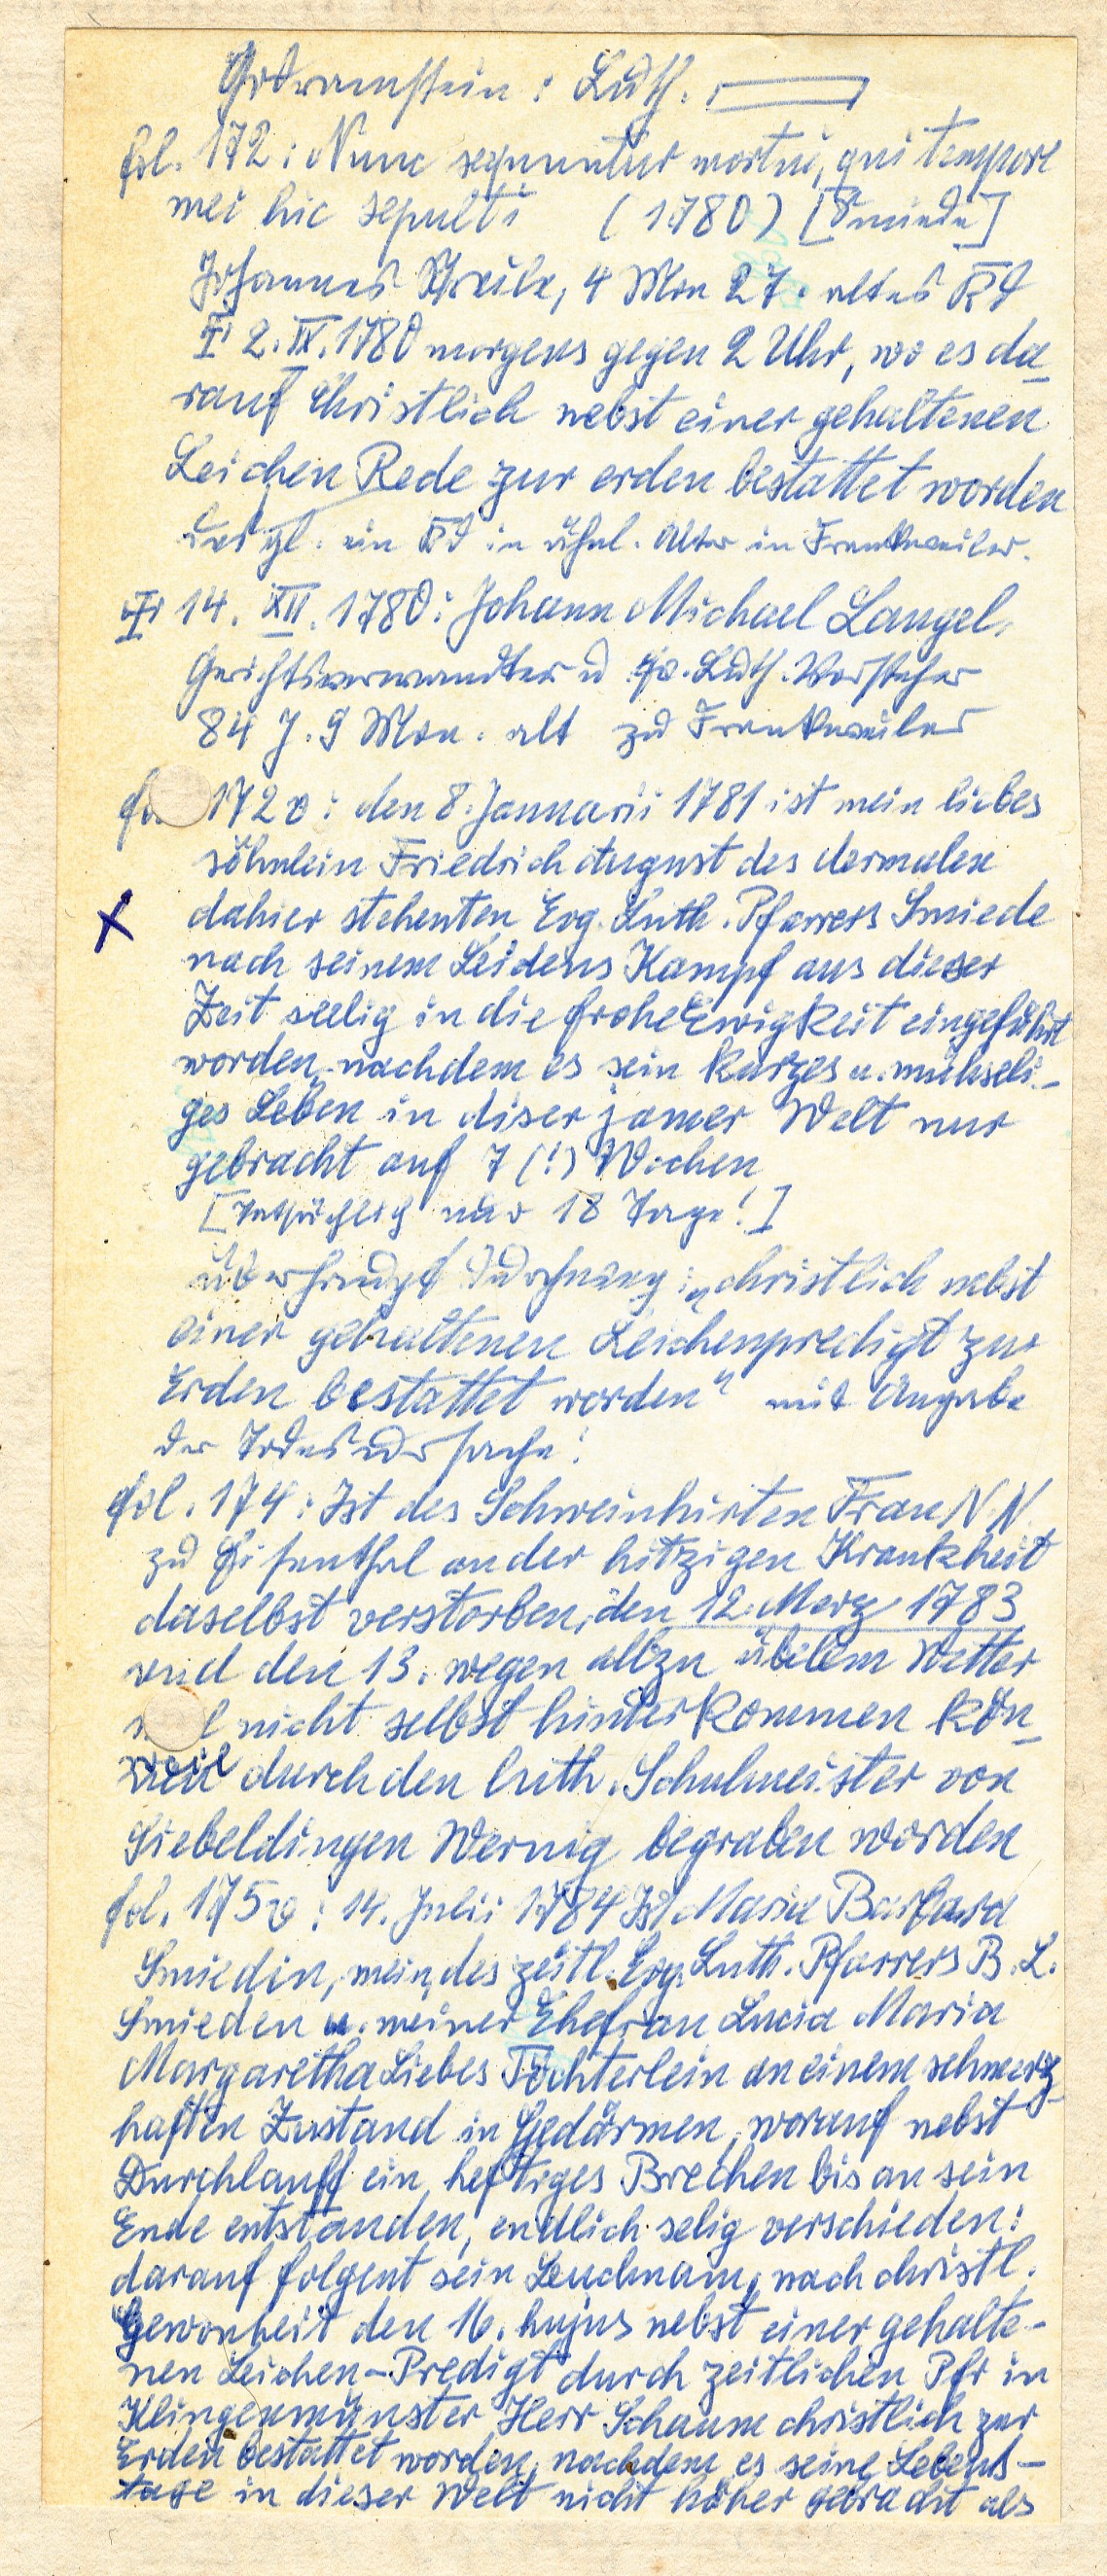 Godramstein: Luth.
fol. 172: Nunc sequuntur mortui, qui tempore
mei hic sepulti (1780) [Smiede]
Johannes 4 Mon 27. altes Kd
2. IX. 1780 morgens gegen 2 Uhr, wo es da-
rauf christlich nebst einer gehaltenen
Leichen Rede zur erden bestattet worden
desgl. ein Kd in ähnl. Alter in Frankweiler.
14. XII. 1780: Johann Michael Langel,
Gerichtsverwandter u Ev. Luth. Vorsteher
84 J. 9 Mon. alt zu Frankweiler
172v: den 8. Januarii 1781 ist mein liebes
söhnlein Friedrich August des dermalen
x dahier stehenten Evg. Luth. Pfarrers Smiede
nach seinem Leidens Kampf aus dieser
Zeit seelig in die frohe Ewigkeit eingeführt
worden, nachdem es sein kurzes u. mühseli-
ges Leben in diser jamer Welt nur
gebracht auf 7 (!) Wochen
[Tatsächlich nur 18 Tage!]
überhaupt „christlich nebst
einer gehaltenen Leichenpredigt zur
Erden bestattet worden“ mit Angabe
der Todesursache!
fol. 174: Ist des Schweinhirten Frau N.N.
zu Eisenthal an der hitzigen Krankheit
daselbst verstorben, den 12. Merz 1783
und den 13. wegen allzu übelem Wetter
nicht selbst hinterkommen kön-
nen durch den luth. Schulmeister von
Siebeldingen Wernig begraben worden
fol. 175v: 14. Julii 1784 Ist Maria Barbara
Smiedin, mein, des zeitl. Evg. Luth. Pfarrers B. L.
Smieden u. meiner Ehefrau Lucia Maria
Margaretha Liebes Töchterlein an einem schmerz-
haften Zustand in Gedärmen, worauf nebst
Durchlauff ein heftiges Brechen bis an sein
Ende entstanden, endlich selig verschieden:
darauf folgent sein Leuchnam, nach christl.
Gewonheit den 16. hujus nebst einer gehalte-
nen Leichen-Predigt durch zeitlichen Pfr in
Klingenmünster Herr Schaum christlich zur
Erden bestattet worden, nachdem es seine Lebens-
tage in dieser Welt nicht höher gebracht als